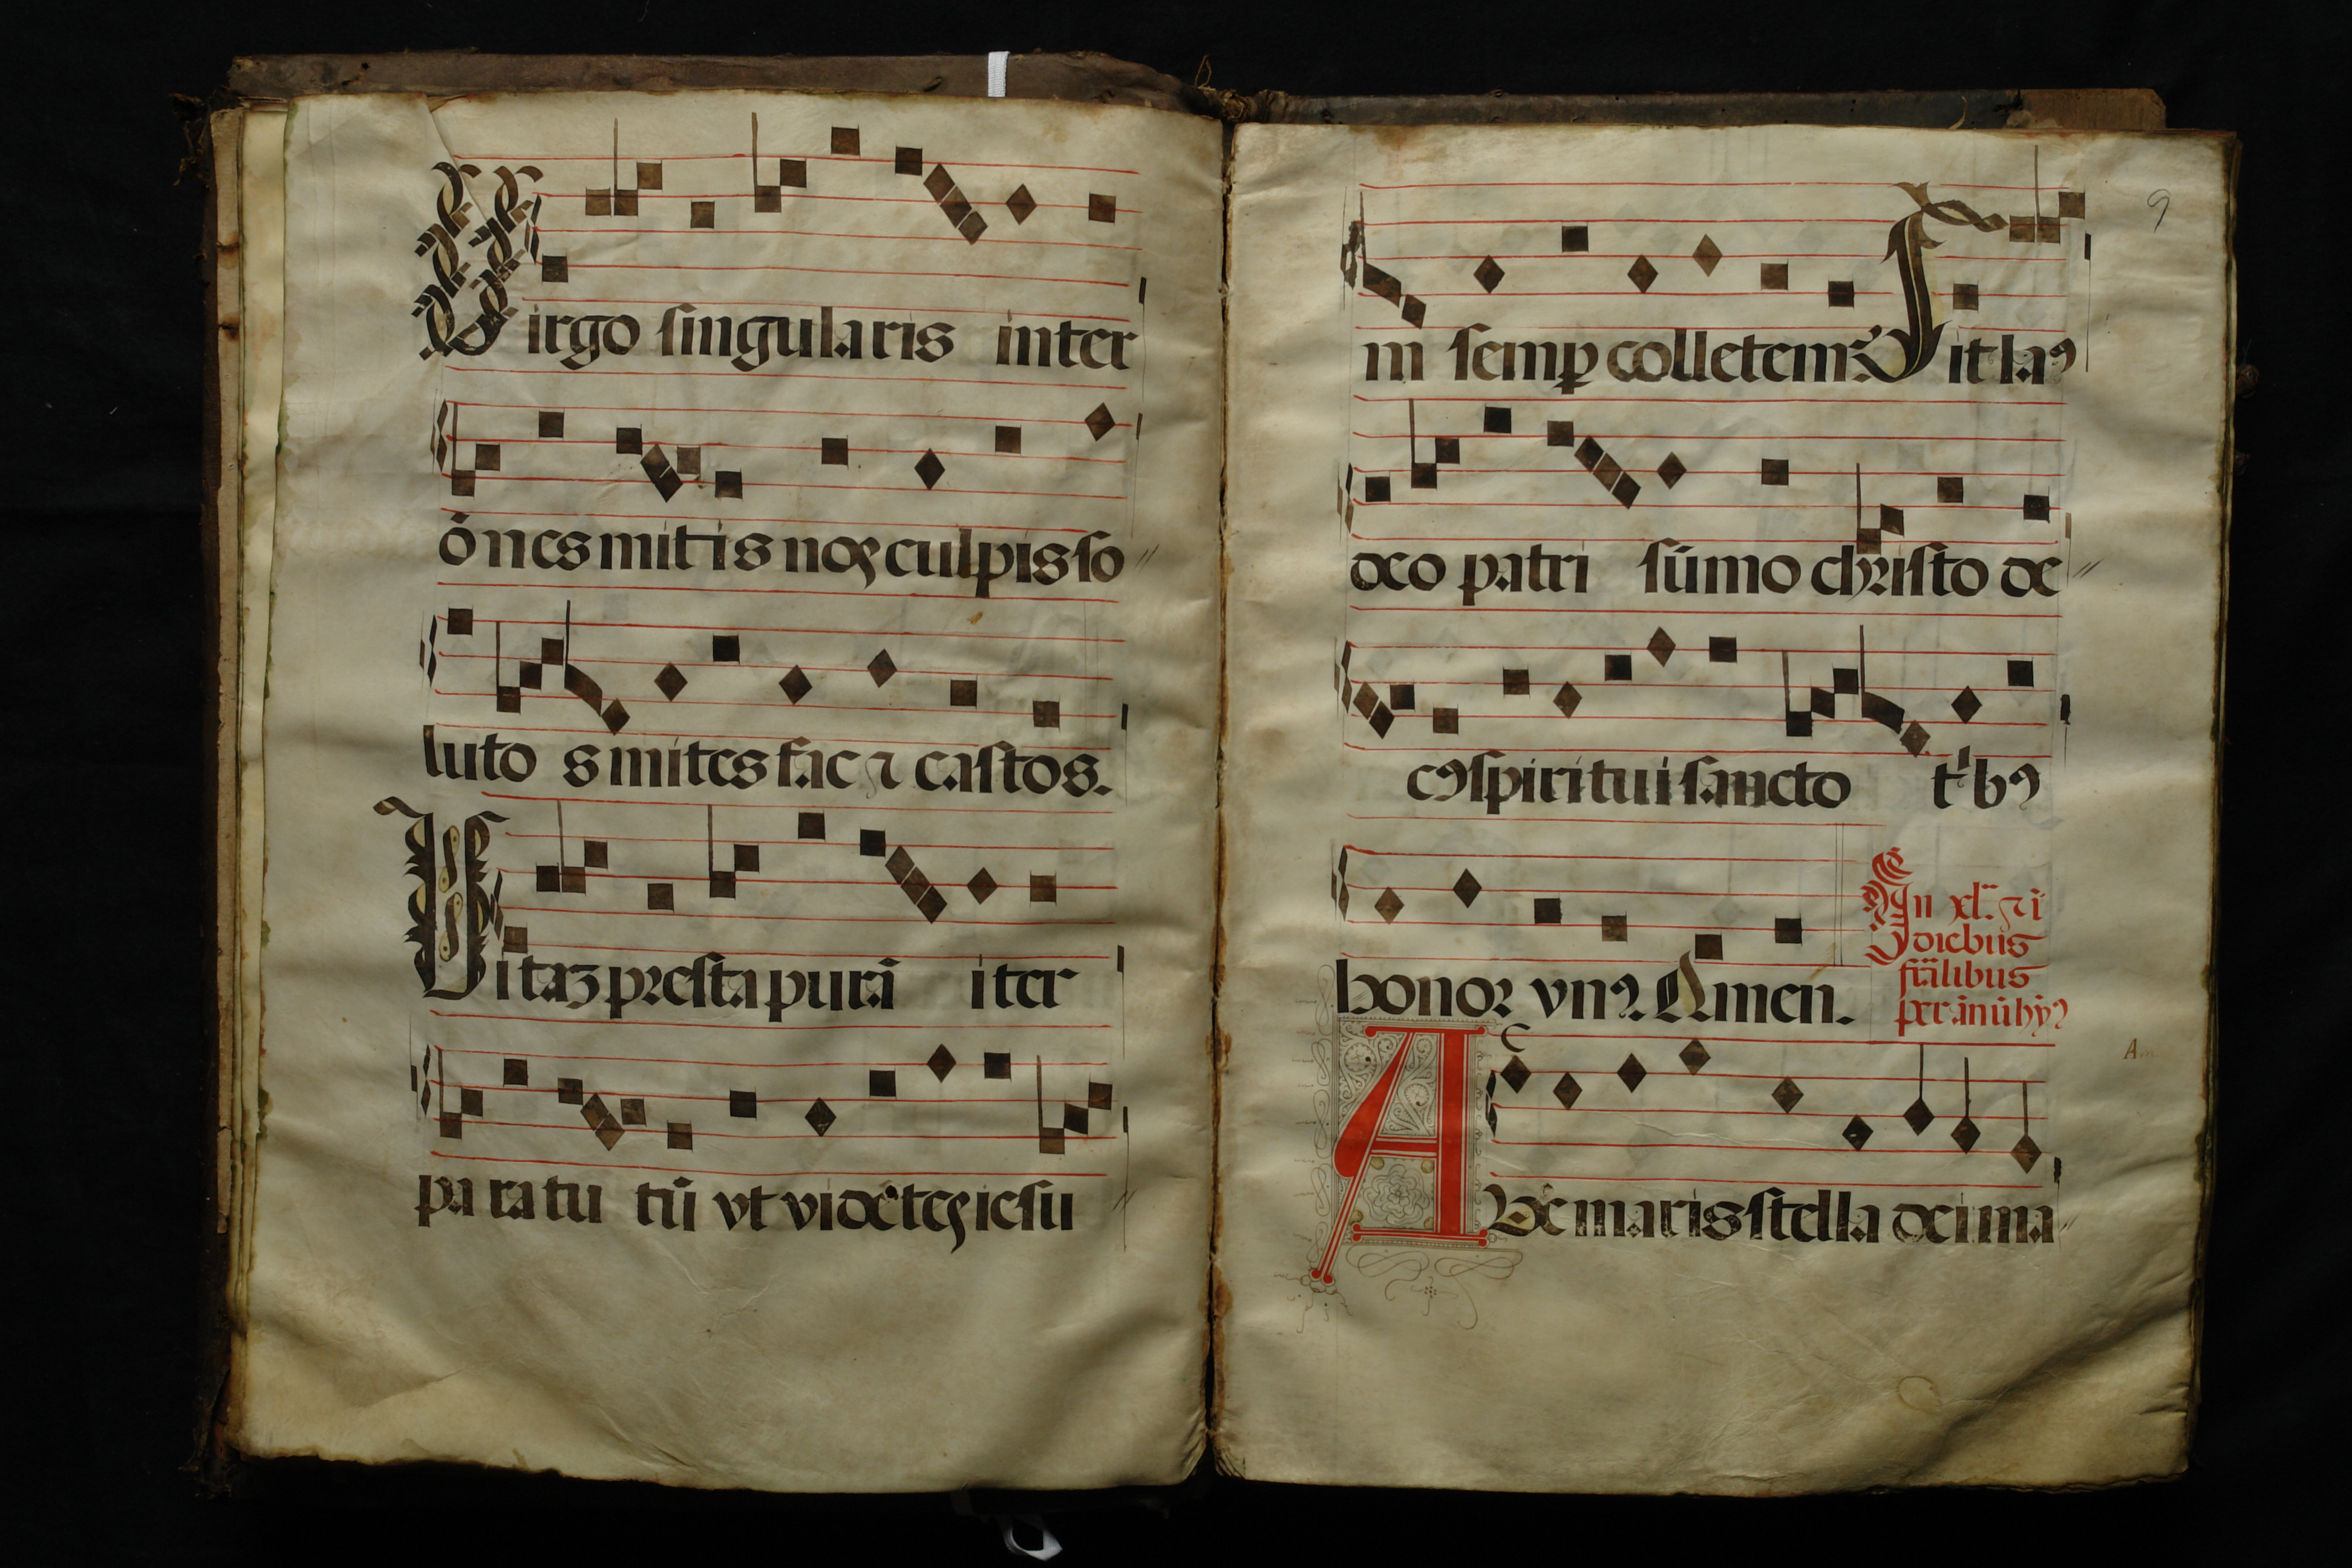 Virgo singularis inter
ōnes mitis nos culpis so
lutos mites fac ⁊ castos.
Vitaʒ presta purā iter
para tutū vt vidētes iesu
9
m semp colletemꝰ Sit laꝰ
deo patri sūmo christo de
cꝰ spiritui sancto tⁱbꝰ
honor vnꝰ. Amen.
In xl. ⁊ ī
diebus
frālibus
per ānū hyꝰ
AVe maris stella dei ma